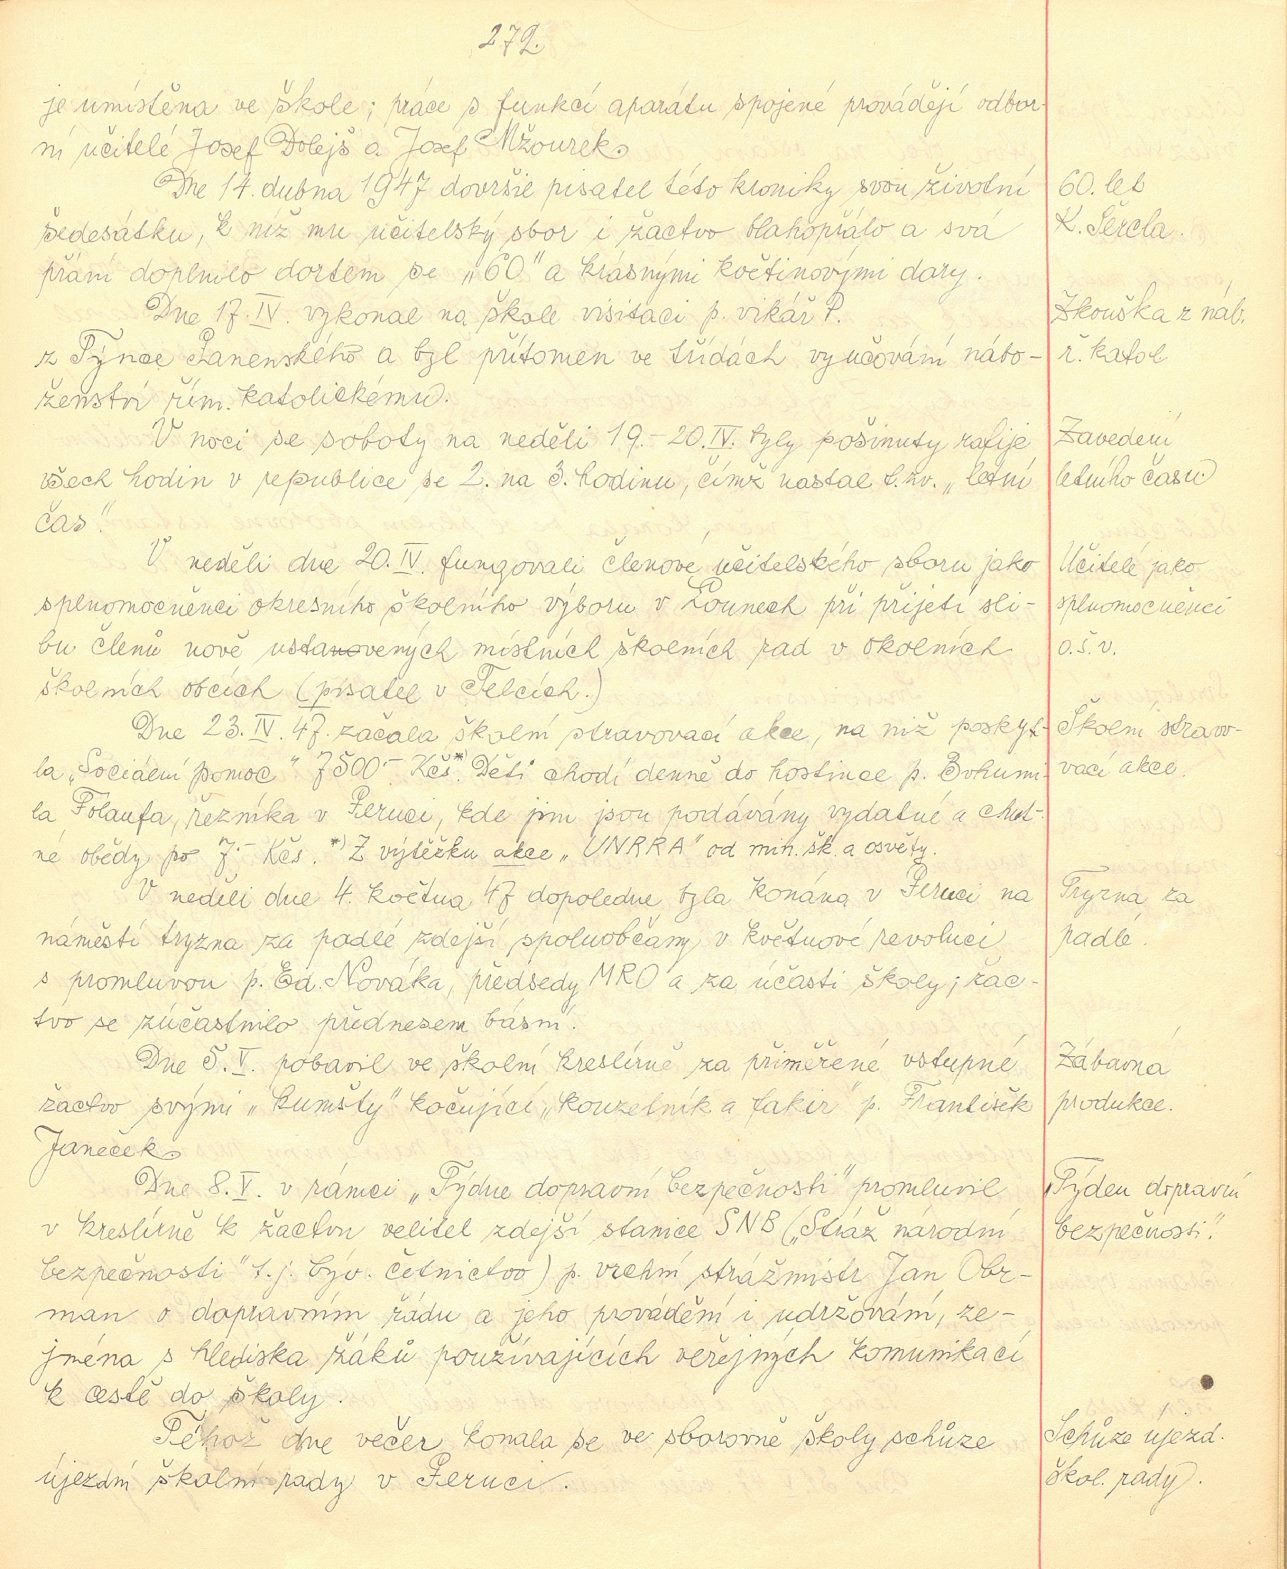 272.
je umístěna ve škole; práce s funkcí aparátu spojené provádějí odbor-
ní učitelé Josef Dolejš a Josef Mžourek.
Dne 14. dubna 1947 dovršil pisatel této kroniky svou životní
60. let
šedesátku, k níž mu učitelský sbor i žactvo blahopřálo a svá
K. Šercla.
přání doplnilo dortem se „60" a krásnými květinovými dary.
Dne 17. IV. vykonal na škole visitaci p. vikář P.
Zkouška z náb.
z Týnce Panenského a byl přítomen ve třídách vyučování nábo-
ř. katol
ženství řím. katolickému.
V noci se soboty na neděli 19.-20. IV. byly pošinuty rafije
Zavedení
všech hodin v republice se 2. na 3. hodinu, čímž nastal t. zv. „letní
letního času
čas".
V neděli dne 20. IV. fungovali členové učitelského sboru jako
Učitelé jako
splnomocněnci okresního školního výboru v Lounech při přijetí sli-
splnomocněnci
bu členů nově ustanovených místních školních rad v okolních
o.š.v.
školních obcích (pisatel v Telcích.)
Dne 23. IV. 47. začala školní stravovací akce, na niž poskyt-
Školní stravo-
la „Sociální pomoc" 7500·- Kčs*). Děti chodí denně do hostince p. Bohumi
vací akce.
la Folaufa, řezníka v Peruci, kde jim jsou podávány vydatné a chut-
né obědy po 7·- Kčs. *) Z výtěžku akce „UNRRA" od min. šk. a osvěty.
V neděli dne 4. května 47 dopoledne byla konána v Peruci na
Tryzna za
náměstí tryzna za padlé zdejší spoluobčany v květnové revoluci
padlé.
s promluvou p. Ed. Nováka, předsedy MRO a za účasti školy; žac-
tvo se zúčastnilo přednesem básní.
Dne 5. V. pobavil ve školní kreslírně za přiměřené vstupné
Zábavná
žactvo svými „kumšty" kočující „kouzelník a fakir" p. František
produkce.
Janeček.
Dne 8. V. v rámci „Týdne dopravní bezpečnosti" promluvil
„Týden dopravní
v kreslírně k žactvu velitel zdejší stanice SNB („Stráž národní
bezpečnosti".
bezpečnosti" t. j. býv. četnictvo) p. vrchní strážmistr Jan Obr-
man o dopravním řádu a jeho provádění i udržování, ze-
jména s hlediska žáků používajících veřejných komunikací
k cestě do školy.
Téhož dne večer konala se ve sborovně školy schůze
Schůze újezd.
újezdní školní rady v Peruci.
škol. rady.